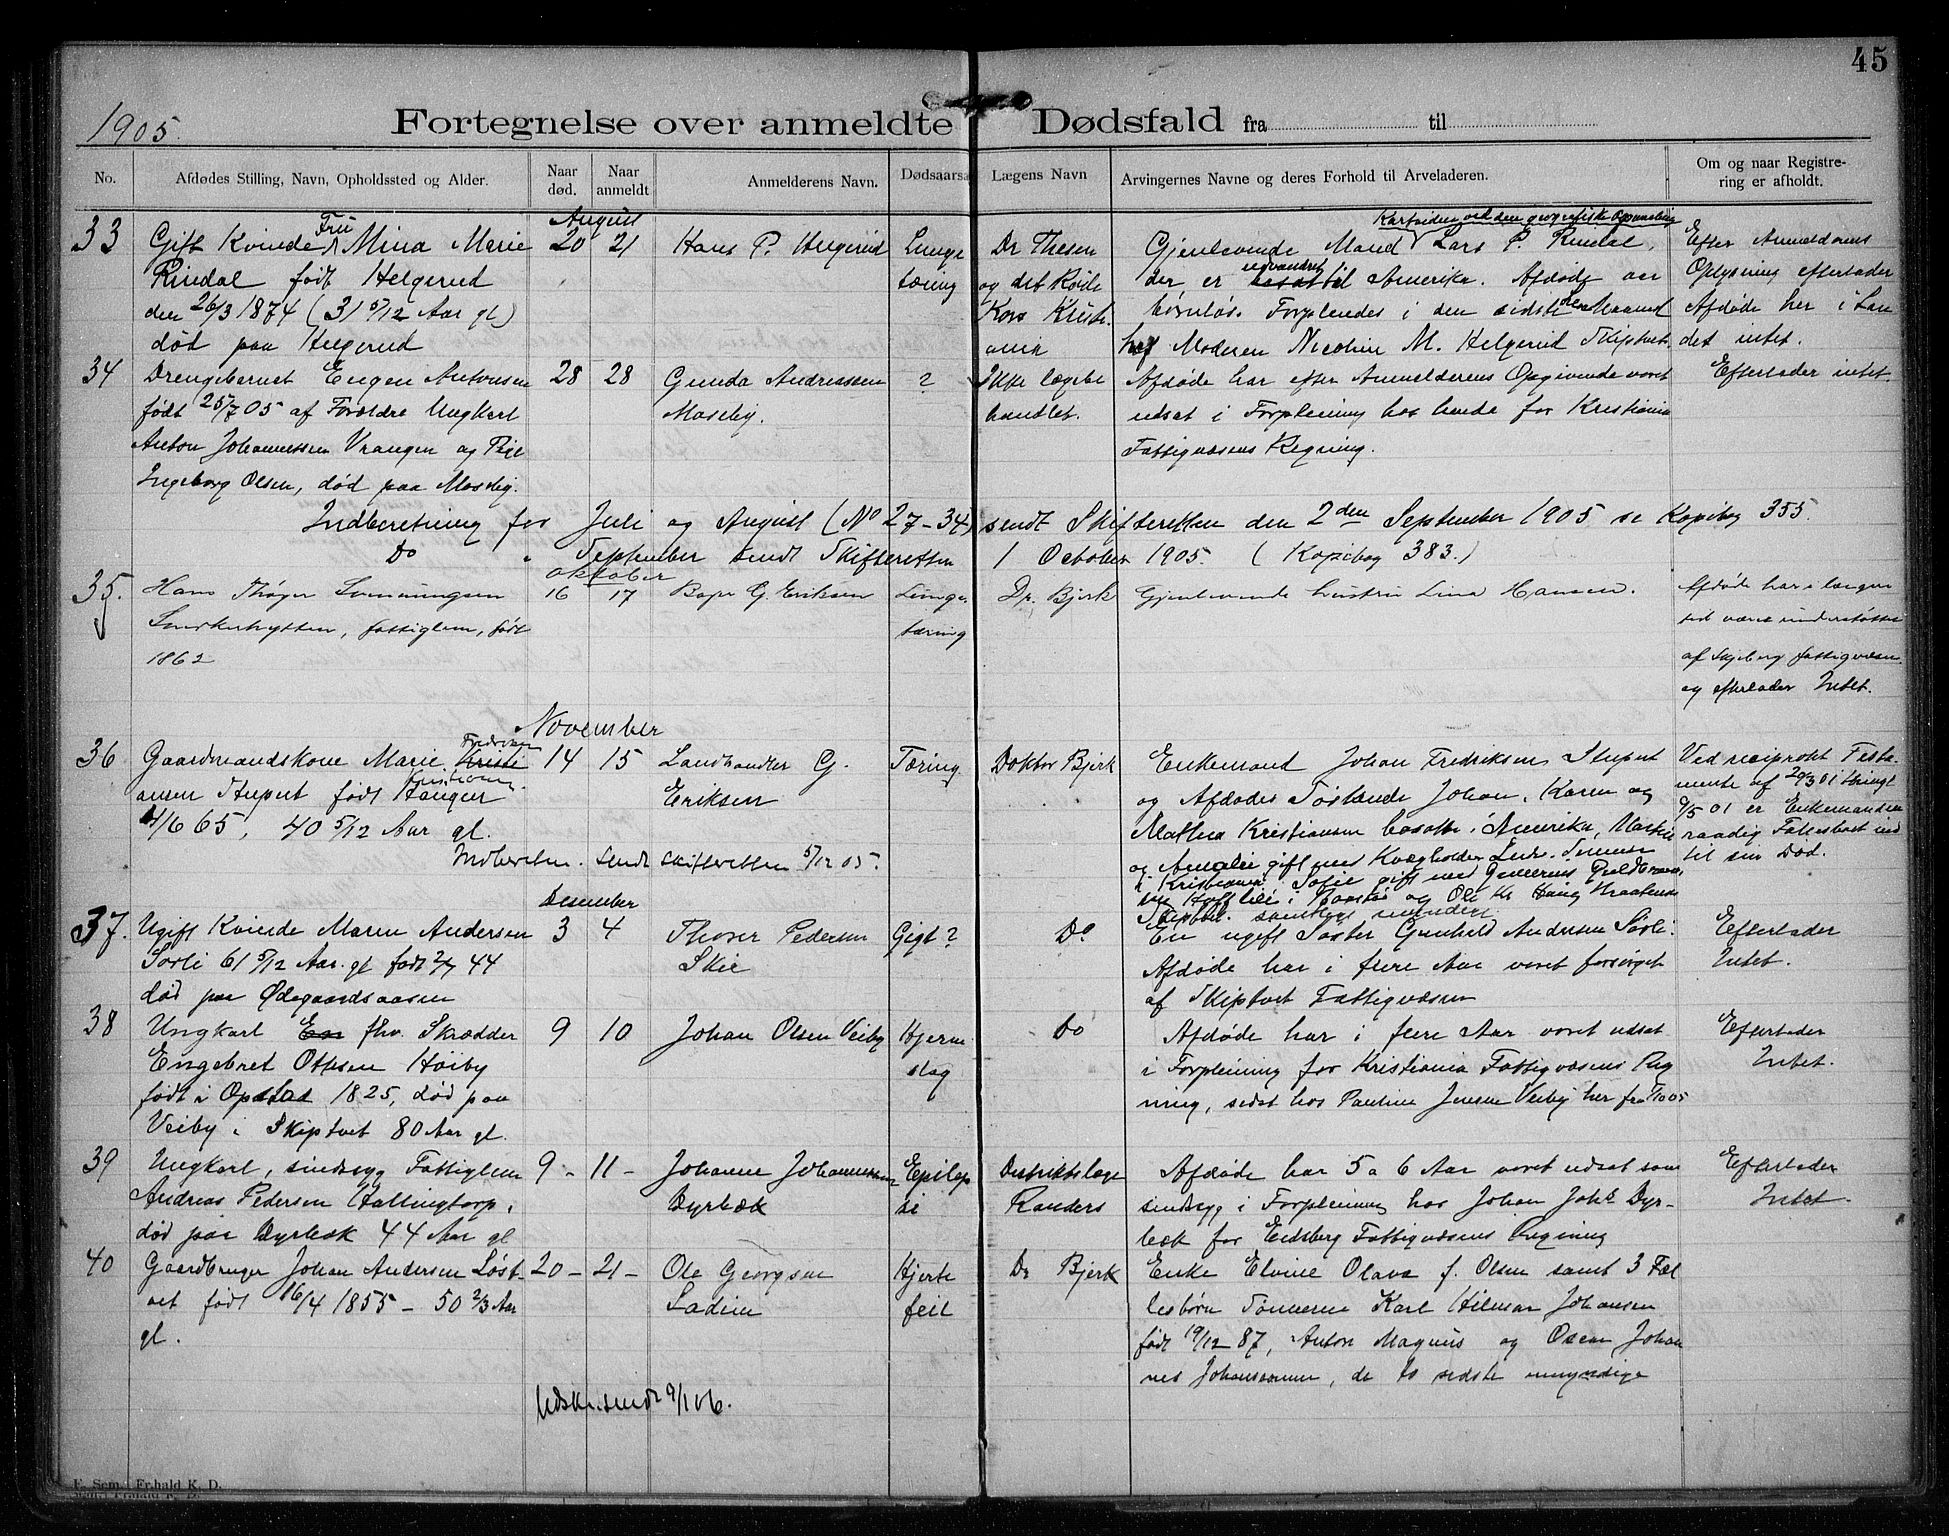 45
1905.
Fortegnelse over anmeldte Dødsfald fra til
No.
Afdødes Stilling, Navn, Opholdssted og Alder.
Naar død.
Naar anmeldt
Anmelderens Navn.
Dødsaarsa
Lægens Navn
Arvingernes Navne og deres Forhold til Arveladeren.
Om og naar Registre-
ring er afholdt.
August
33
Fru
Gift Kvinde Mina Marie
Rindal født Helgerud
den 26/3 1874 (31 5/12 Aar gl)
død paa Helgerud
20
21
Hans P. Helgerud
Lunge
tæring
Dr Thesen
og det Røde
Kors Kristi
ania
ved den geografiske Opmaaling
Gjenlevende Mand Lars P. Rindal,
udvandret
der er bosat til Amerika. Afdøde var
barnløs. Forpleiedes i den sidste Maaned
hos Moderen Nicoline M. Helgerud Skiptvet.
Efter Anmelderens
Oplysning efterlader
Afdøde her i Lan
det intet.
34
Drengebarnet Eugen Antonsen
født 25/7 05 af Forældre Ungkarl
Anton Johannessen Vrangen og Pige
Ingeborg Olsen, død paa Moseby.
28
28
Gunda Andreassen
Moseby.
?
Ikke lægebe
handlet.
Afdøde har efter Anmelderens Opgivende været
udsat i Forpleining hos hende for Kristiania
Fattigvæsens Regning.
Efterlader intet.
Indberetning for Juli og August (No 27-34) sendt Skifteretten den 2den September 1905 se Kopibog 355.
Do " September sendt Skifteretten 1 October 1905. (Kopibog 383.)
Oktober
35.
Hans Thøger
fattiglem, født
1862
16
17
G. Eriksen
Lunge-
tæring
Dr. Bjerk
Gjenlevende hustru Lina Hansen.
Afdøde har i længere
tid været understøttet
af Skjeberg fattigvæsen
og efterlader Intet.
November
36
Fredrikson
Gaardmandskone Marie Kristi
Kristiansen
ansen født Haugen
4/6 65, 40 5/12 Aar gl.
14
15
Landhandler G.
Eriksen
Tæring
Doktor Bjerk
Enkemand Johan Fredriksen
og Afdødes Søskende Johan, Karen og
Mathea Kristiansen bosatte i Amerika, Martin
og Amalie gift med Kvægholder
i Kristiania, Sofie gift med
og Ole Kr. Haug
Skiptvet. samtlige myndige
Ved reciprokt Testa
mente af 20/3 01 thinglæst
9/5 01 er Enkemanden
raadig Fællesboet ind
til sin Død.
Indberetn. sendt skifteretten 5/12 05.
Desember
37.
Ugift Kvinde Maren Andersen
Sørli 61 5/12 Aar. gl født 2/7 44
død paa Ødegaardsaasen
3
4
Thorer Pedersen
Skie
Gigt?
Do
En ugift Søster Gunhild Andersen Sørli.
Afdøde har i flere Aar været forsørget
af Skiptvet Fattigvæsen
Efterlader
Intet.
38
Ungkarl fhv. Skrædder
Engebret Ottesen Høiby
født i Opstad 1825, død paa
Veiby i Skiptvet 80 Aar gl.
9
10
Johan Olsen Veiby
Hjerne
slag
Do
Afdøde har i flere Aar været udsat
i Forpleining for Kristiania Fattigvæsens Reg
ning, sidst hos Pauline Jensen Veiby her fra
Efterlader
Intet.
39
Ungkarl, sindssyg Fattiglem
Andreas Pedersen Hallingtorp,
død paa Dyrbæk 44 Aar gl
9 -
11 -
Johanne Johannessen
Dyrbæk
Epilep
si
Distriktslæge
Randers
Afdøde har 5 a 6 Aar været udsat som
sindssyg i Forpleining hos Johan Johs Dyr-
bæk for Eidsberg Fattigvæsens Regning
Efterlader
Intet.
40
Gaardbruger Johan Andersen Løst-
vet født 16/4 1855 - 50 2/3 Aar
gl.
20 -
21 -
Ole Georgsen
Ladim
Hjerte
feil
Dr Bjerk
Enke Elvine Olava f. Olsen samt 3 Fæl
lesbørn Sønnerne Karl Hilmar Johansen
født 19/12 87, Anton Magnus og Oscar Johan
nes Johanssønner, de to sidste umyndige
Udskr. sendt 9/1 06.
F. Sem, Fr.hald K. D.